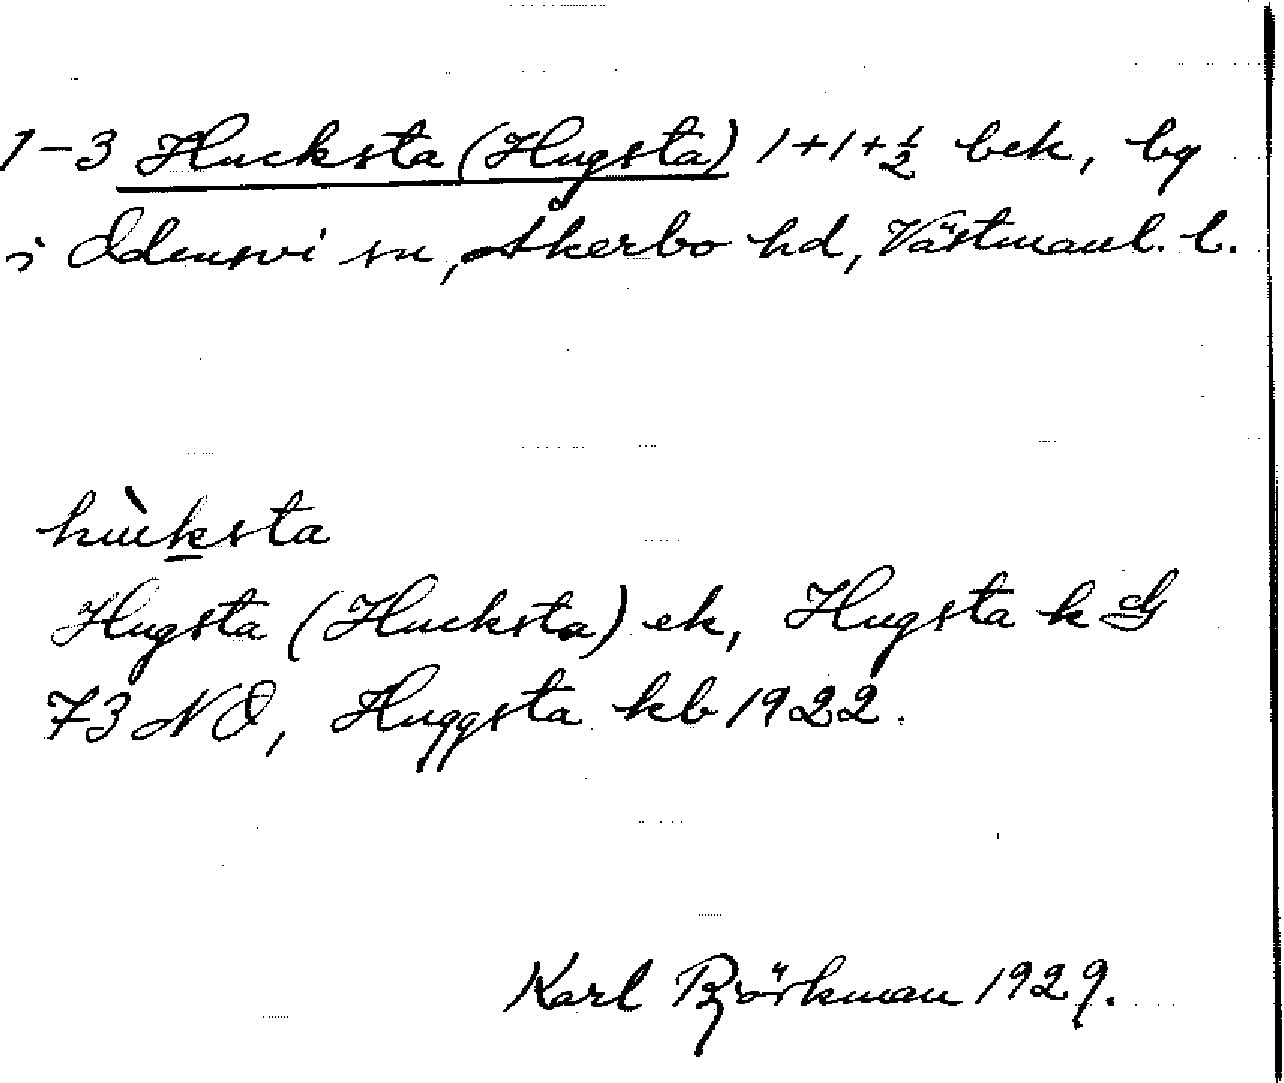 1-3 Hucksta (Hugsta) 1+1+½ bek, by
i Odensvi sn, Åkerbo hd, Västmanl. l.
hùksta
Hugsta (Hucksta) ek, Hugsta k G
73 NO, Huggsta kb 1922.
Karl Björkman 1929.